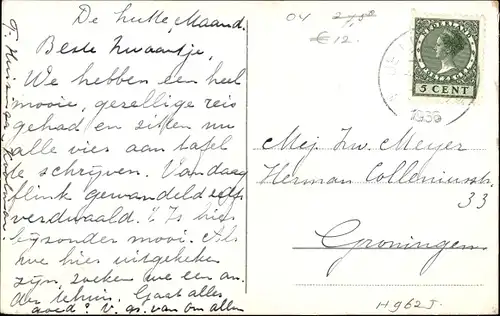 De hutte, Maand.
Beste Zwaantje,
We hebben een heel
mooie, gezellige reis
gehad en zitten nu
alle vier aan tafel
te schrijven. Vandaag
flink gewandeld zelfs
verdwaald. 't Is hier
bijzonder mooi. Als
we hier uitgekeken
zijn, zoeken we een an-
der tehuis. Gaat alles
goed? V. gr. van ons allen
T. Huis
04 27,50
€ 12.
NEDERLAND
5 CENT
1936
Mej Zw. Meyer
Herman Colleniusstr.
33
Groningen
H962J.